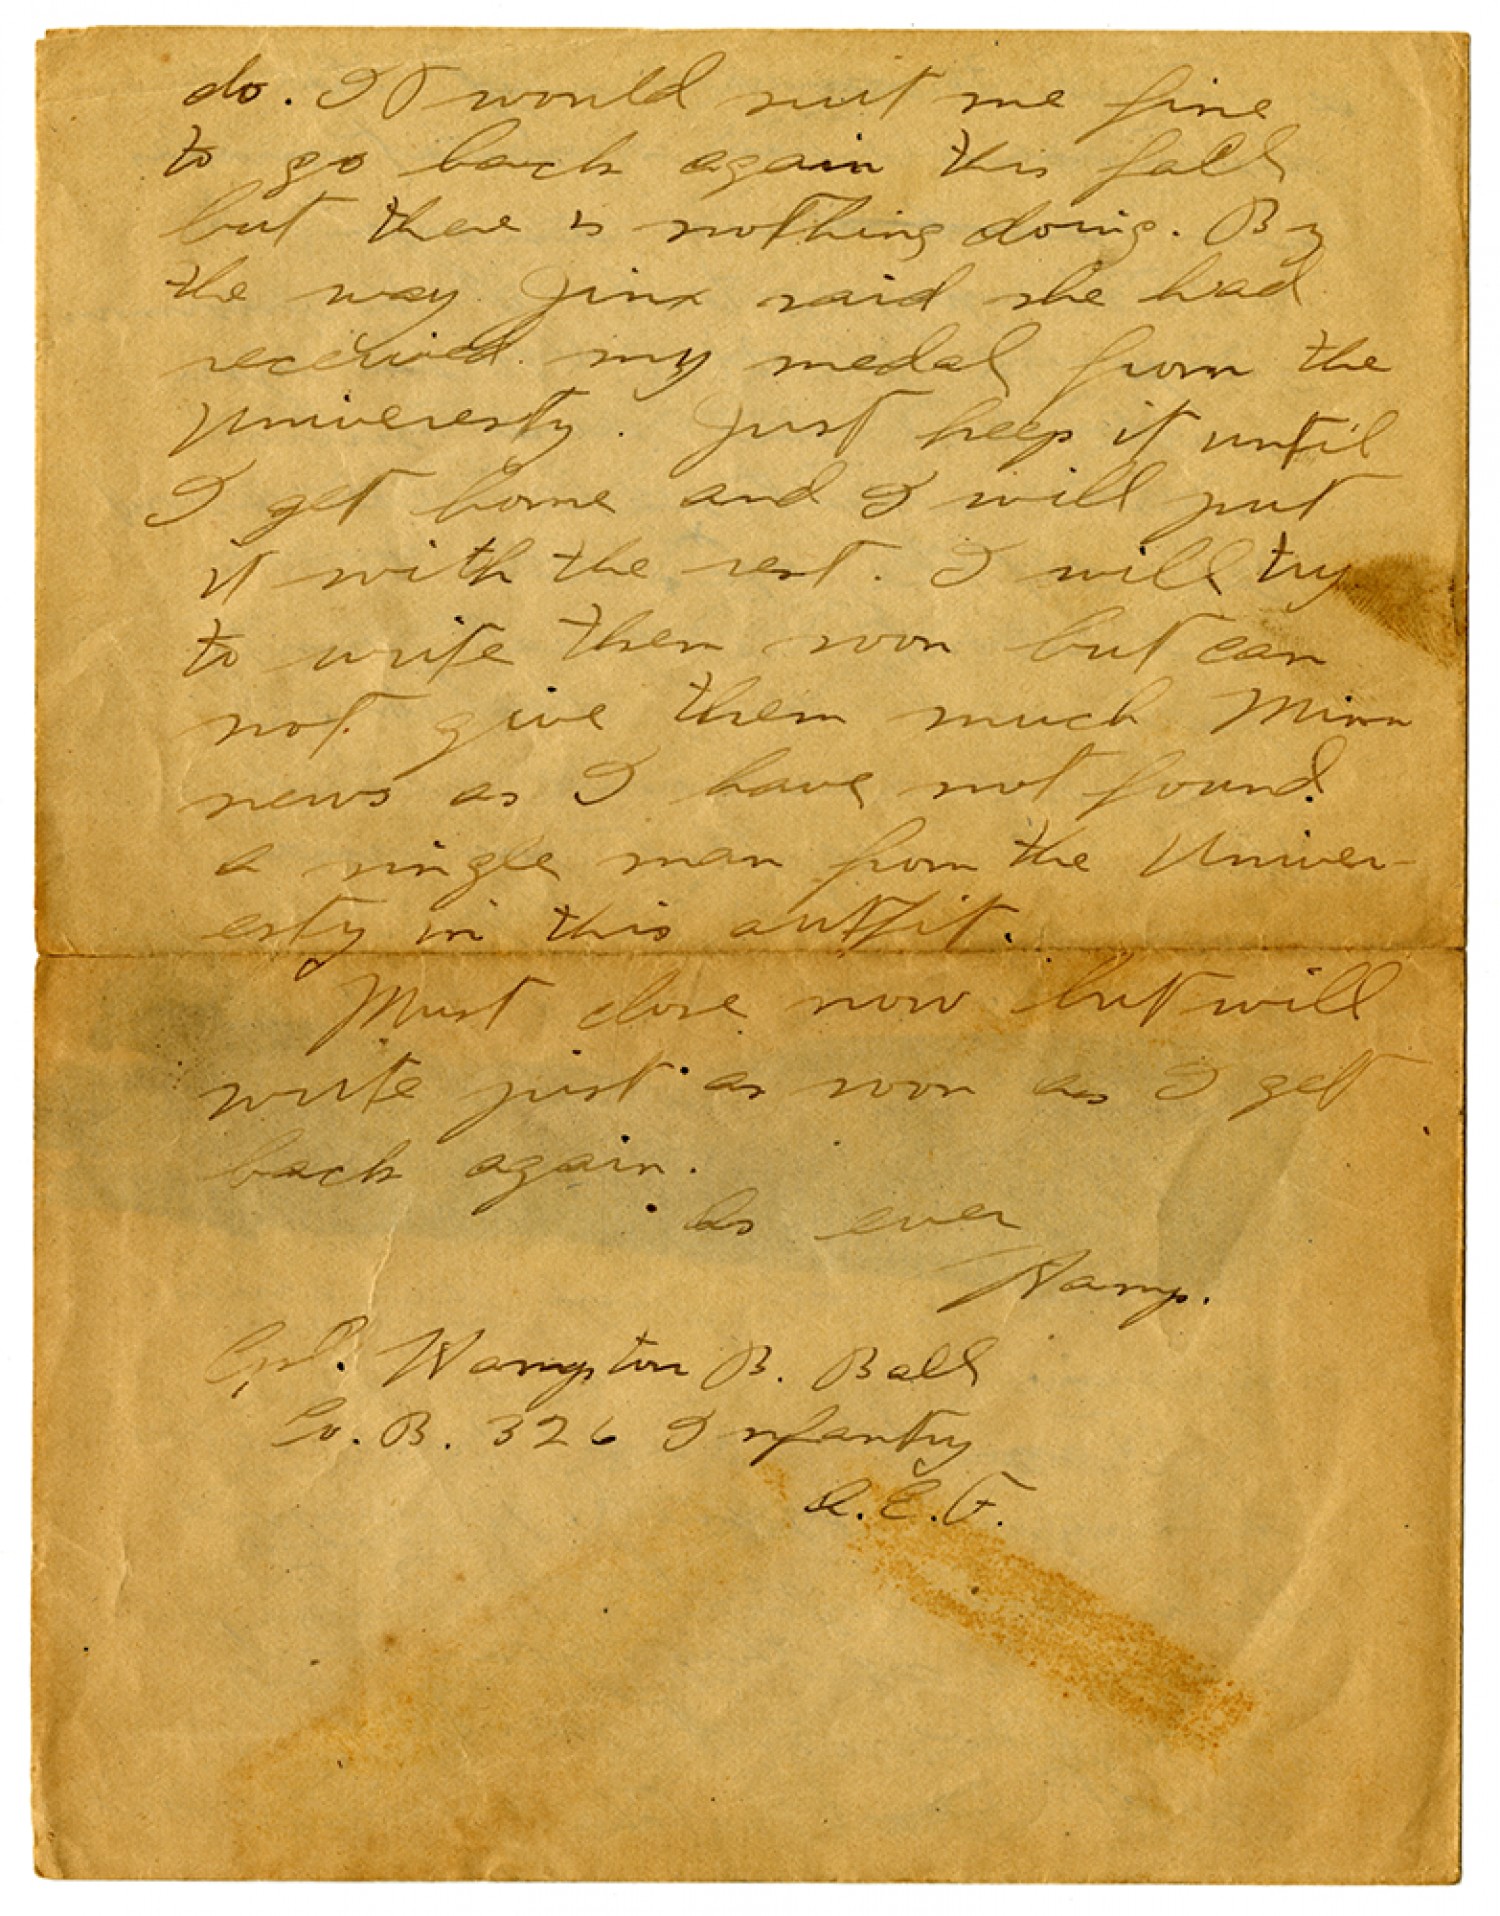 do. It would suit me fine
to go back again this fall
but there is nothing doing. By
the way Jinx said she had
received my medal from the
Univeresty. Just keep it until
I get home and I will put
it with the rest. I will try
to write them soon but can
not give them much Minn
news as I have not found
a single man from the Univer-
esty in this outfit.
Must close now but will
write just as soon as I get
back again.
As ever
Wamp.
Cpl. Wampton B. Ball
Co. B. 326 Infantry
A.E.F.